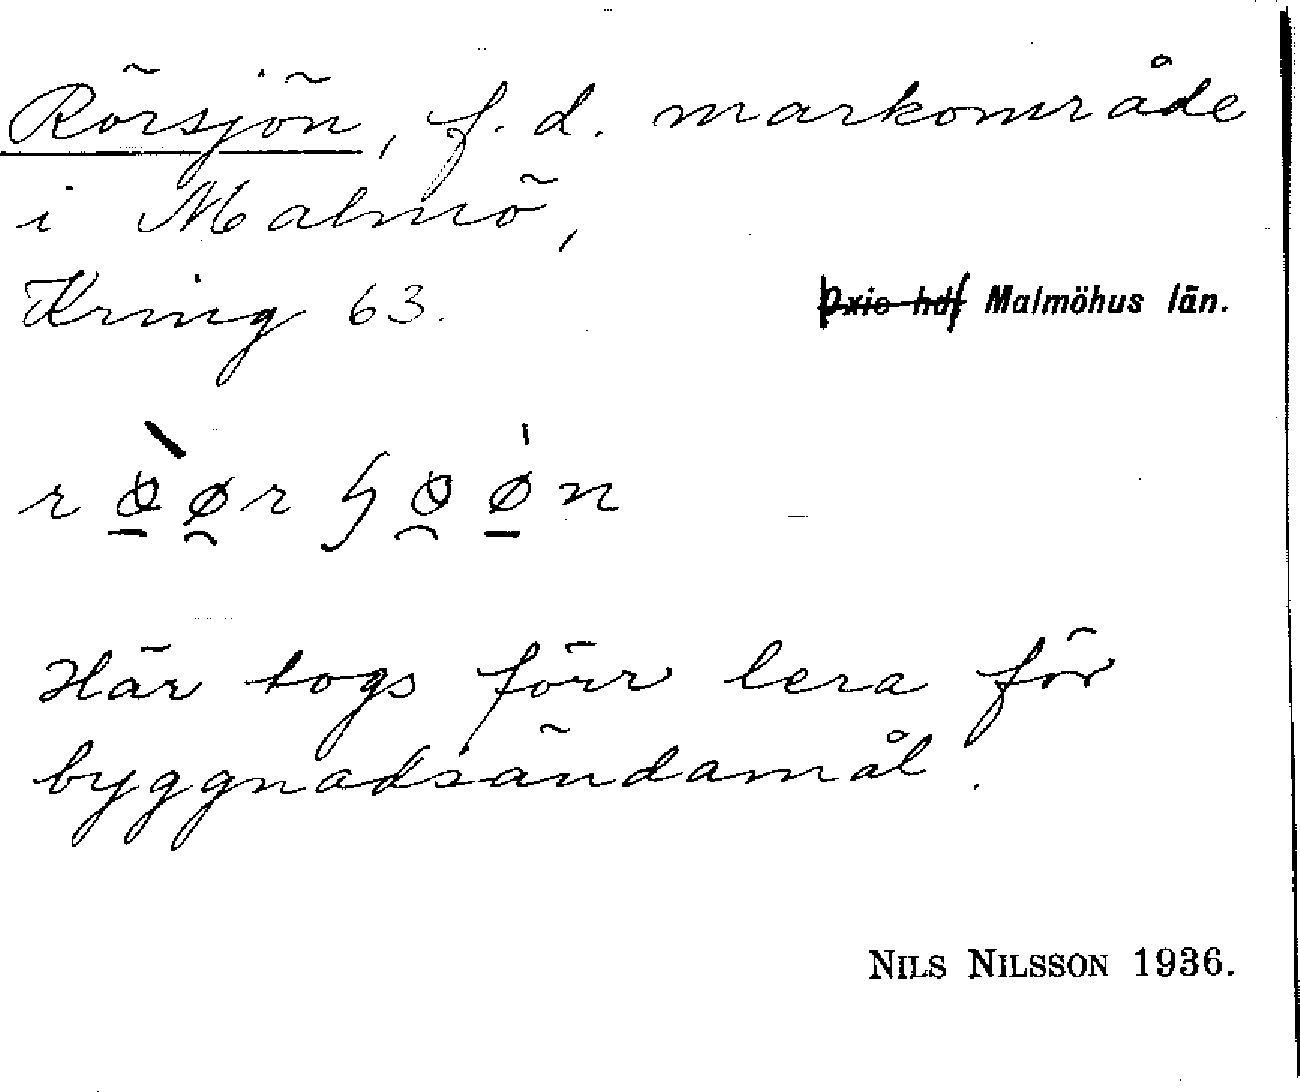 Rörsjön, f. d. markområde
i Malmö,
Kring 63. Oxie hd, Malmöhus län.
Här togs förr lera för
byggnadsändamål.
NILS NILSSON 1936.